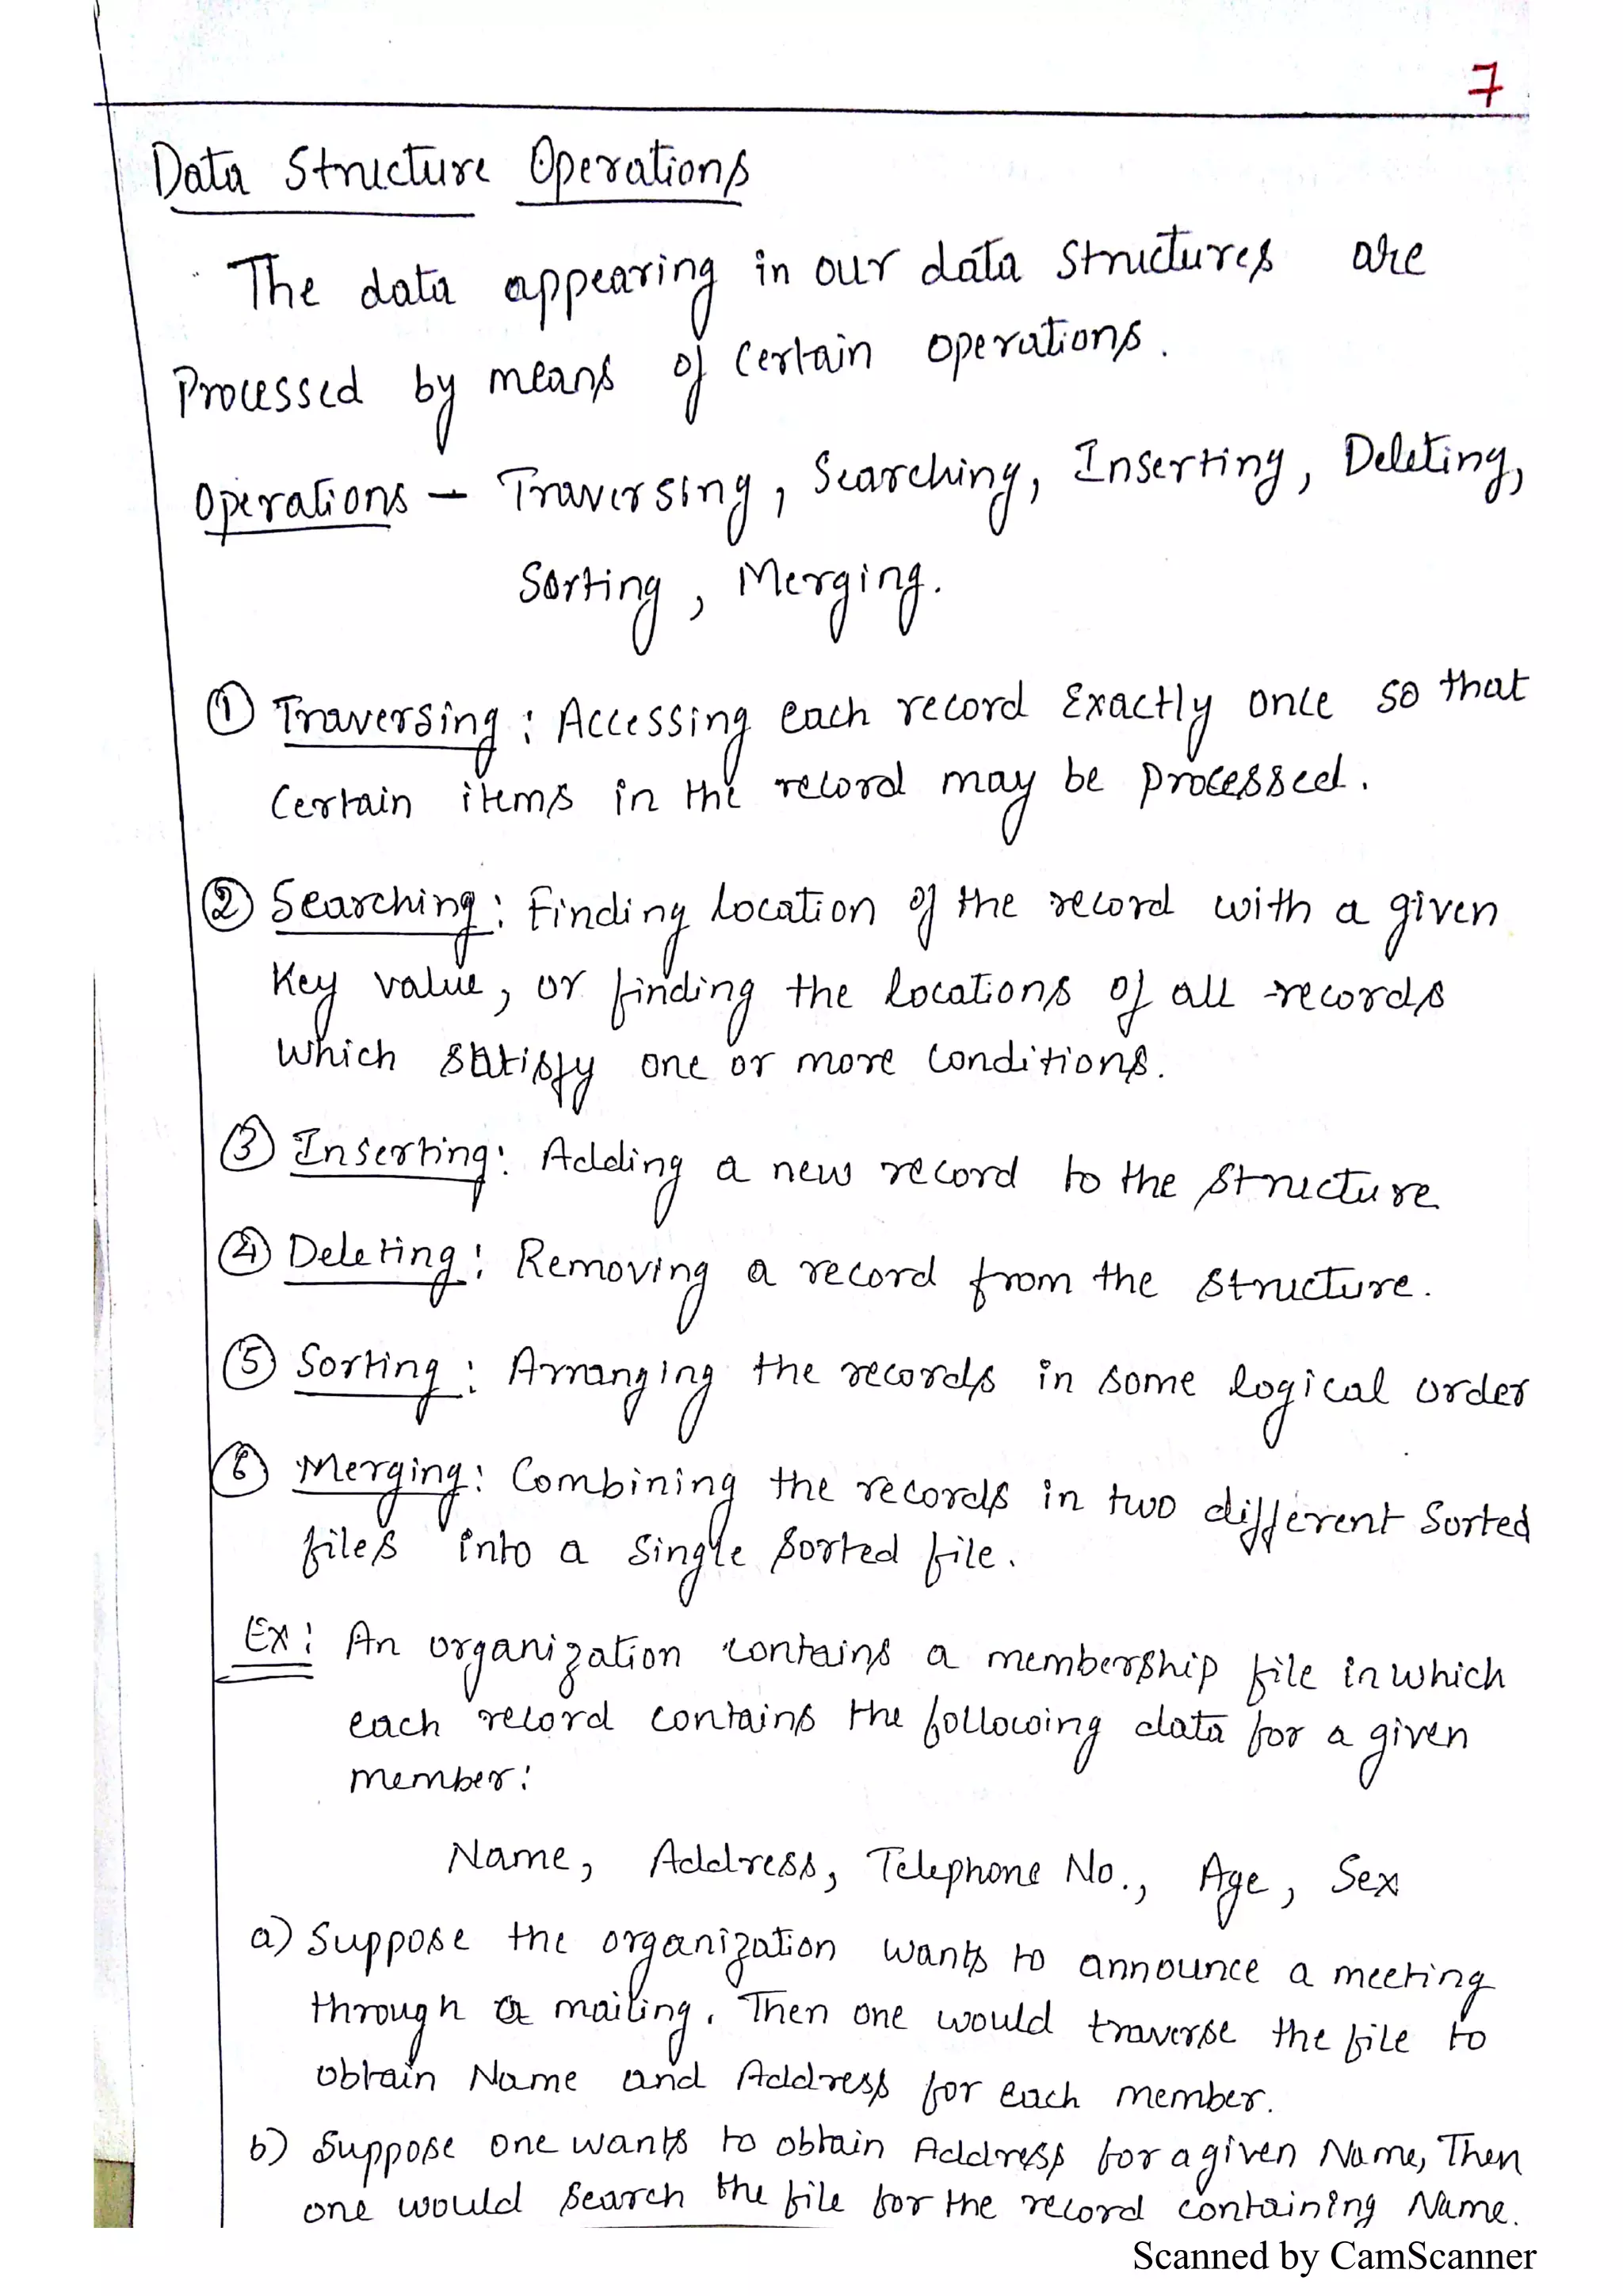 7
Data Structure Operations
The data appearing in our data structures are
Processed by means of certain operations.
Operations – Traversing, Searching, Inserting, Deleting,
Sorting, Merging.
① Traversing: Accessing each record Exactly once so that
Certain items in the record may be processed.
② Searching: Finding location of the record with a given
Key value, or finding the locations of all records
which satisfy one or more conditions.
③ Inserting: Adding a new record to the structure
④ Deleting: Removing a record from the structure.
⑤ Sorting: Arranging the records in some logical order
⑥ Merging: Combining the records in two different Sorted
files into a single sorted file.
Ex: An organization contains a membership file in which
each record contains the following data for a given
member:
Name, Address, Telephone No., Age, Sex
a) Suppose the organization wants to announce a meeting
through a mailing. Then one would traverse the file to
obtain Name and Address for each member.
b) Suppose one wants to obtain Address for a given Name, Then
one would search the file for the record containing Name.
Scanned by CamScanner